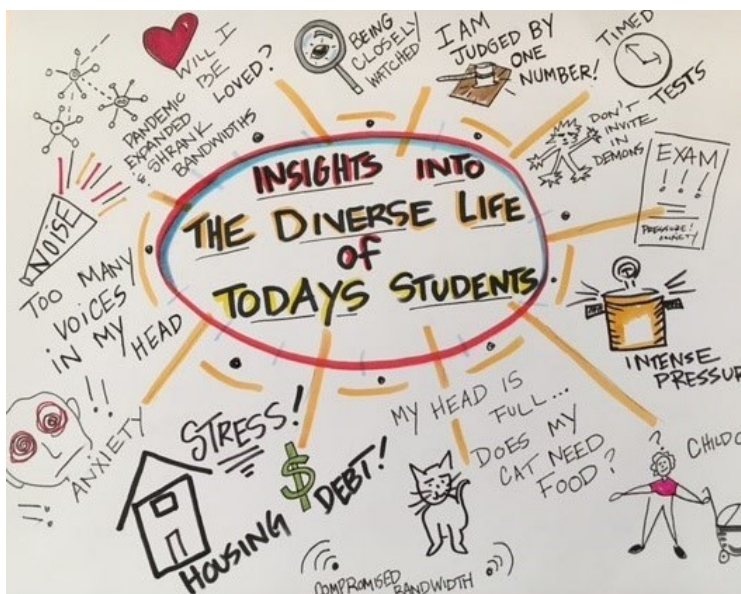 INSIGHTS INTO
THE DIVERSE LIFE
of
TODAYS STUDENTS
WILL I
BE
LOVED?
PANDEMIC
EXPANDED
& SHRANK
BANDWIDTHS
BEING
CLOSELY
WATCHED
I AM
JUDGED BY
ONE
NUMBER!
TIMED
TESTS
DON'T
INVITE
IN
DEMONS
EXAM
! ! !
PRESSURE!
ANXIETY
INTENSE
PRESSUR
CHILDC
?
MY HEAD IS
FULL...
DOES MY
CAT NEED
FOOD?
COMPROMISED BANDWIDTH
$ DEBT!
STRESS!
HOUSING
ANXIETY
!!
NOISE
TOO MANY
VOICES
IN MY
HEAD